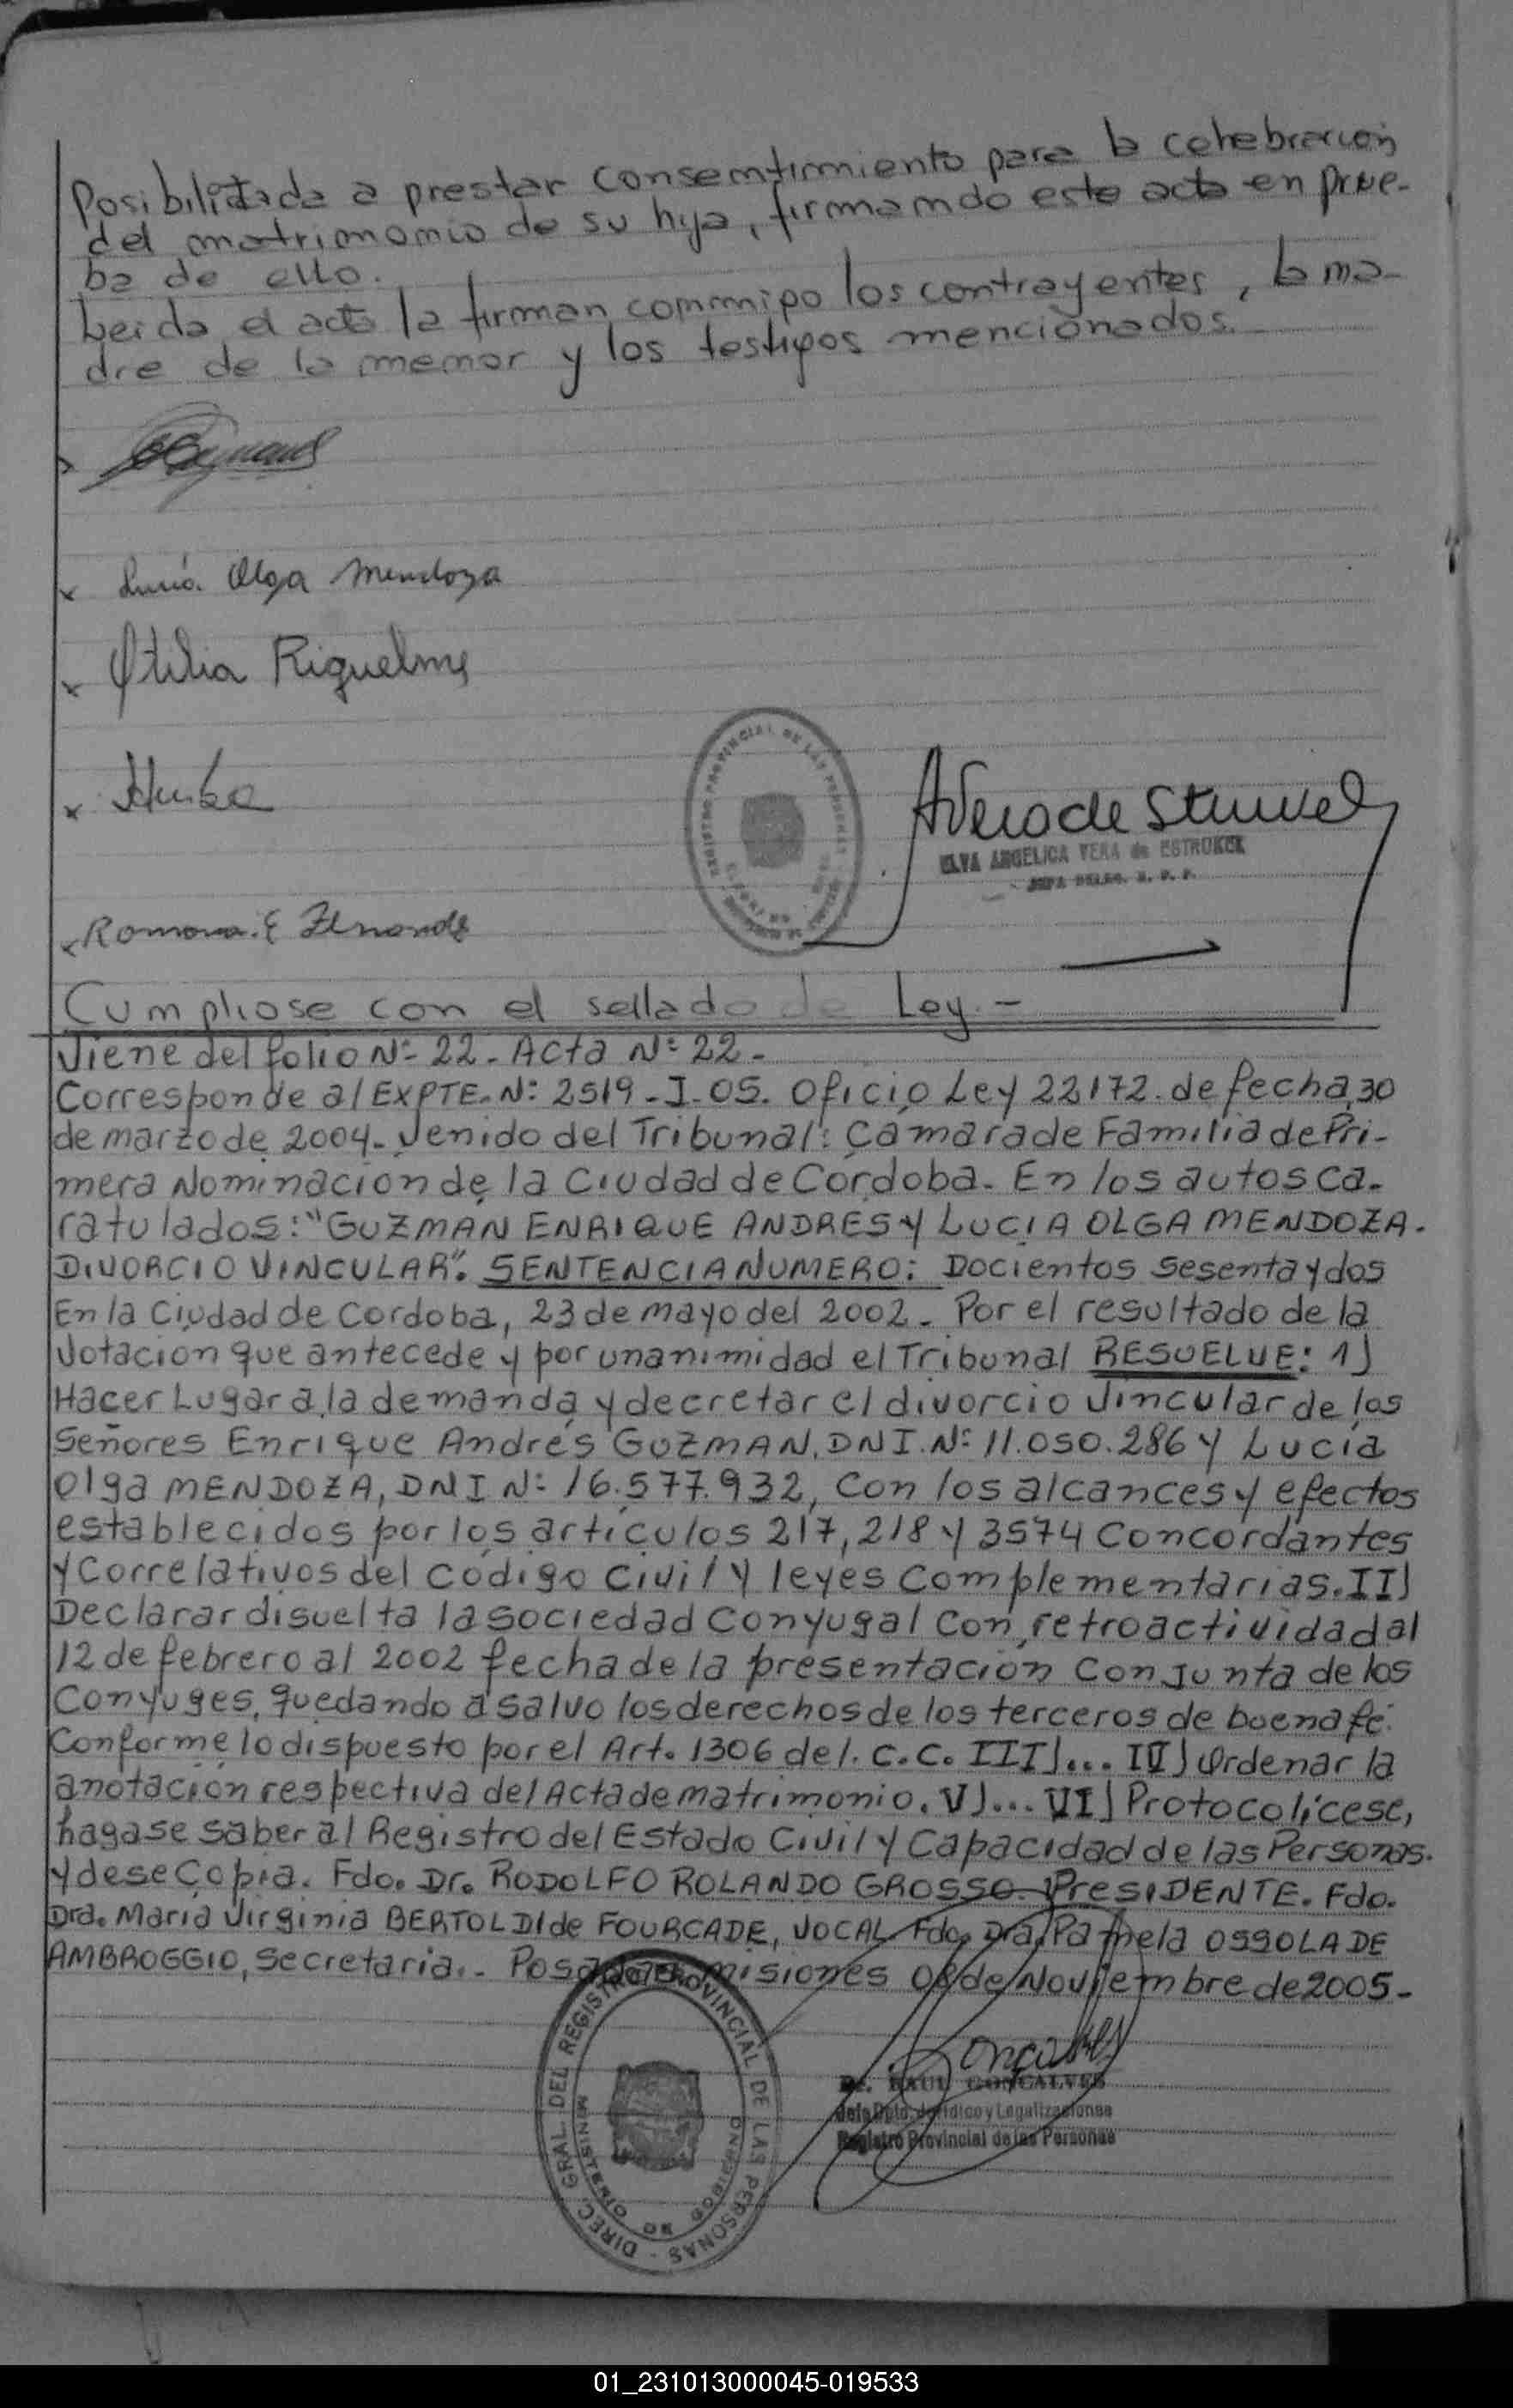 Posibilitada a prestar consentimiento para la celebracion
del matrimonio de su hija, firmando este acta en prue-
ba de ello.
Leida el acta la firman conmigo los contrayentes, la ma-
dre de la menor y los testigos mencionados.
Lucia Olga Mendoza
Otilia Riquelme
REGISTRO PROVINCIAL DE LAS PERSONAS
ELVA ANGELICA VERA de ESTRUKEL
JEFA DELEG. R. P. P.
Ramona E
Cumpliose con el sellado de Ley.-
Viene del folio Nº 22 - Acta Nº 22 -
Corresponde al EXPTE. Nº 2519-I-05. Oficio Ley 22172. de fecha, 30
de marzo de 2004 - venido del Tribunal: Camara de Familia de Pri-
mera Nominación de la Ciudad de Córdoba - En los autos ca-
ratulados: "GUZMAN ENRIQUE ANDRES Y LUCIA OLGA MENDOZA.
DIVORCIO VINCULAR". SENTENCIA NUMERO: Docientos sesenta y dos
En la Ciudad de Cordoba, 23 de mayo del 2002 - Por el resultado de la
votacion que antecede y por unanimidad el Tribunal RESUELVE: 1)
Hacer Lugar a la demanda y decretar el divorcio vincular de los
Señores Enrique Andrés GUZMAN, DNI. Nº 11.050.286 y Lucía
Olga MENDOZA, DNI Nº 16.577.932, Con los alcances y efectos
establecidos por los artículos 217, 218 y 3574 Concordantes
y Correlativos del Codigo Civil y leyes Complementarias. II)
Declarar disuelta la sociedad Conyugal Con retroactividad al
12 de febrero al 2002 fecha de la presentación Conjunta de los
Conyuges, quedando a salvo los derechos de los terceros de buena fé.
Conforme lo dispuesto por el Art. 1306 del. C.C. III)... IV) Ordenar la
anotación respectiva del Acta de matrimonio. V)... VI) Protocolícese,
hagase saber al Registro del Estado Civil y Capacidad de las Personas.
y dese Copia. Fdo. Dr. RODOLFO ROLANDO GROSSO - PresIDENTE. Fdo.
Dra. Maria Virginia BERTOLDI de FOURCADE, VOCAL - Fdo. Dra. Pamela OSSOLA DE
AMBROGGIO, Secretaria. - Posadas Misiones 08 de Noviembre de 2005 -
DIREC. GRAL. DEL REGISTRO PROVINCIAL DE LAS PERSONAS -
MINISTERIO DE GOBIERNO
Dr. RAUL GONCALVES
Jefe Dpto. Jurídico y Legalizaciones
Registro Provincial de las Personas
01_231013000045-019533